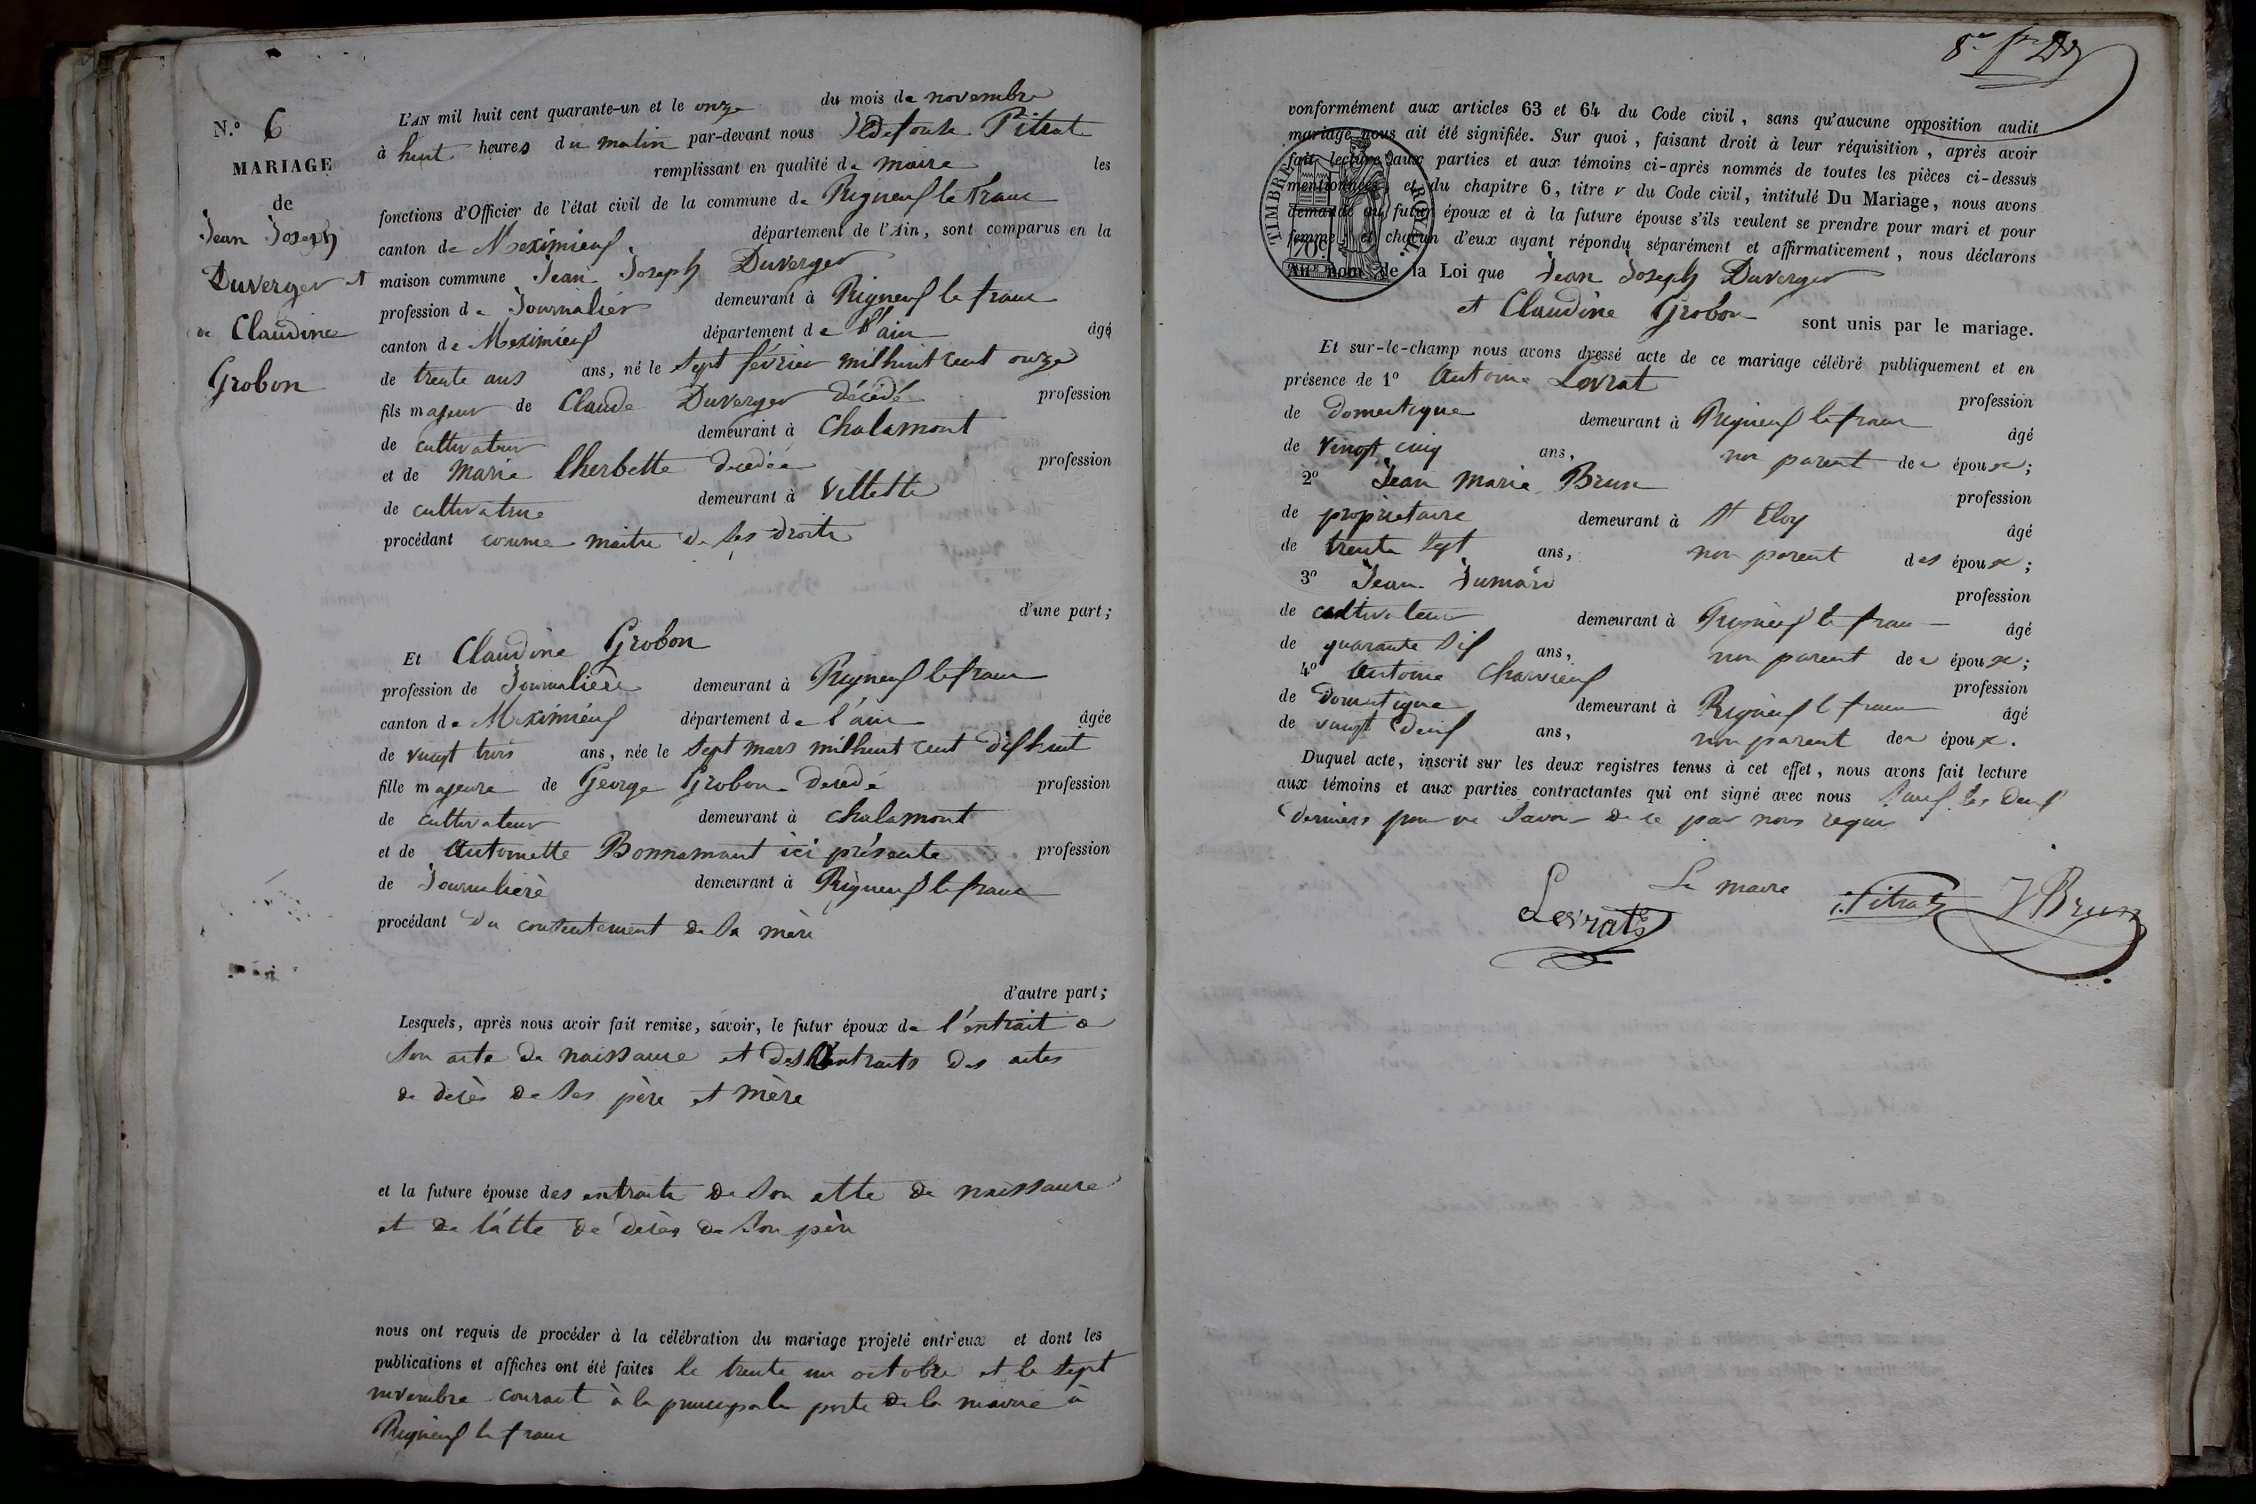 N.° 6
MARIAGE
de
Jean Joseph
Duverger et
de Claudine
Grobon
L'AN mil huit cent quarante-un et le onze du mois de novembre
à huit heures du matin par-devant nous Ildefonse Pitrat
remplissant en qualité de maire les
fonctions d'Officier de l'état civil de la commune de Rigneux le franc
canton de Meximieux département de l'Ain, sont comparus en la
maison commune Jean Joseph Duverger
profession de Journalier demeurant à Rigneux le franc
canton de Meximieux département de l'ain âgé
de trente ans ans, né le sept février mil huit cent onze
fils majeur de Claude Duverger décédé profession
de cultivateur demeurant à Chalamont
et de marie Cherbette decedée profession
de cultivatrice demeurant à Villette
procédant comme maitre de ses droits
d'une part;
Et Claudine Grobon
profession de Journalière demeurant à Rigneux le franc
canton de Meximieux département de l'ain âgée
de vingt trois ans, née le sept mars mil huit cent dixhuit
fille majeure de George Grobon decedé profession
de cultivateur demeurant à chalamont
et de Antoinette Bonnamant ici présente profession
de Journalière demeurant à Rigneux le franc
procédant du contentement de sa mère
d'autre part;
Lesquels, après nous avoir fait remise, savoir, le futur époux de l'extrait de
son acte de naissance et des extraits des actes
de décès de ses père et mère
et la future épouse des extraits de son atte de naissance
et de l'atte de décès de son père
nous ont requis de procéder à la célébration du mariage projeté entr'eux et dont les
publications et affiches ont été faites le trente un octobre et le sept
novembre courant à la principale porte de la mairie à
Rigneux le franc
conformément aux articles 63 et 64 du Code civil, sans qu'aucune opposition audit
mariage nous ait été signifiée. Sur quoi, faisant droit à leur réquisition, après avoir
fait lecture aux parties et aux témoins ci-après nommés de toutes les pièces ci-dessus
mentionnées, et du chapitre 6, titre v du Code civil, intitulé Du Mariage, nous avons
demandé au futur époux et à la future épouse s'ils veulent se prendre pour mari et pour
femme; et chacun d'eux ayant répondu séparément et affirmativement, nous déclarons
Au nom de la Loi que Jean Joseph Duverger
et Claudine Grobon sont unis par le mariage.
TIMBRE ROYAL.
70
Et sur-le-champ nous avons dressé acte de ce mariage célébré publiquement et en
présence de 1° Antoine Levrat profession
de domestique demeurant à Rigneux le franc âgé
de vingt cinq ans, non parent des époux;
2° Jean marie Brun profession
de propriétaire demeurant à St Eloy âgé
de trente sept ans, non parent des époux;
3° Jean profession
de cultivateur demeurant à Rigneux le franc âgé
de quarante six ans, non parent des époux;
4° Antoine Charvieux profession
de domestique demeurant à Rigneux le franc âgé
de vingt deux ans, non parent des époux.
Duquel acte, inscrit sur les deux registres tenus à cet effet, nous avons fait lecture
aux témoins et aux parties contractantes qui ont signé avec nous sauf les deux
derniers pour ne savoir de ce par nous requis
Le maire
Levrat i. Pitrat J Brun